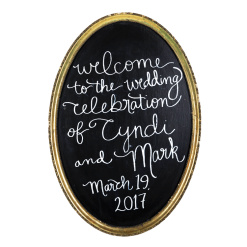 welcome
to the wedding
celebration
of Cyndi
and Mark
March 19,
2017